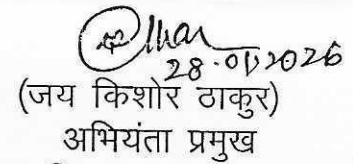 28.01.2026
(जय किशोर ठाकुर)
अभियंता प्रमुख